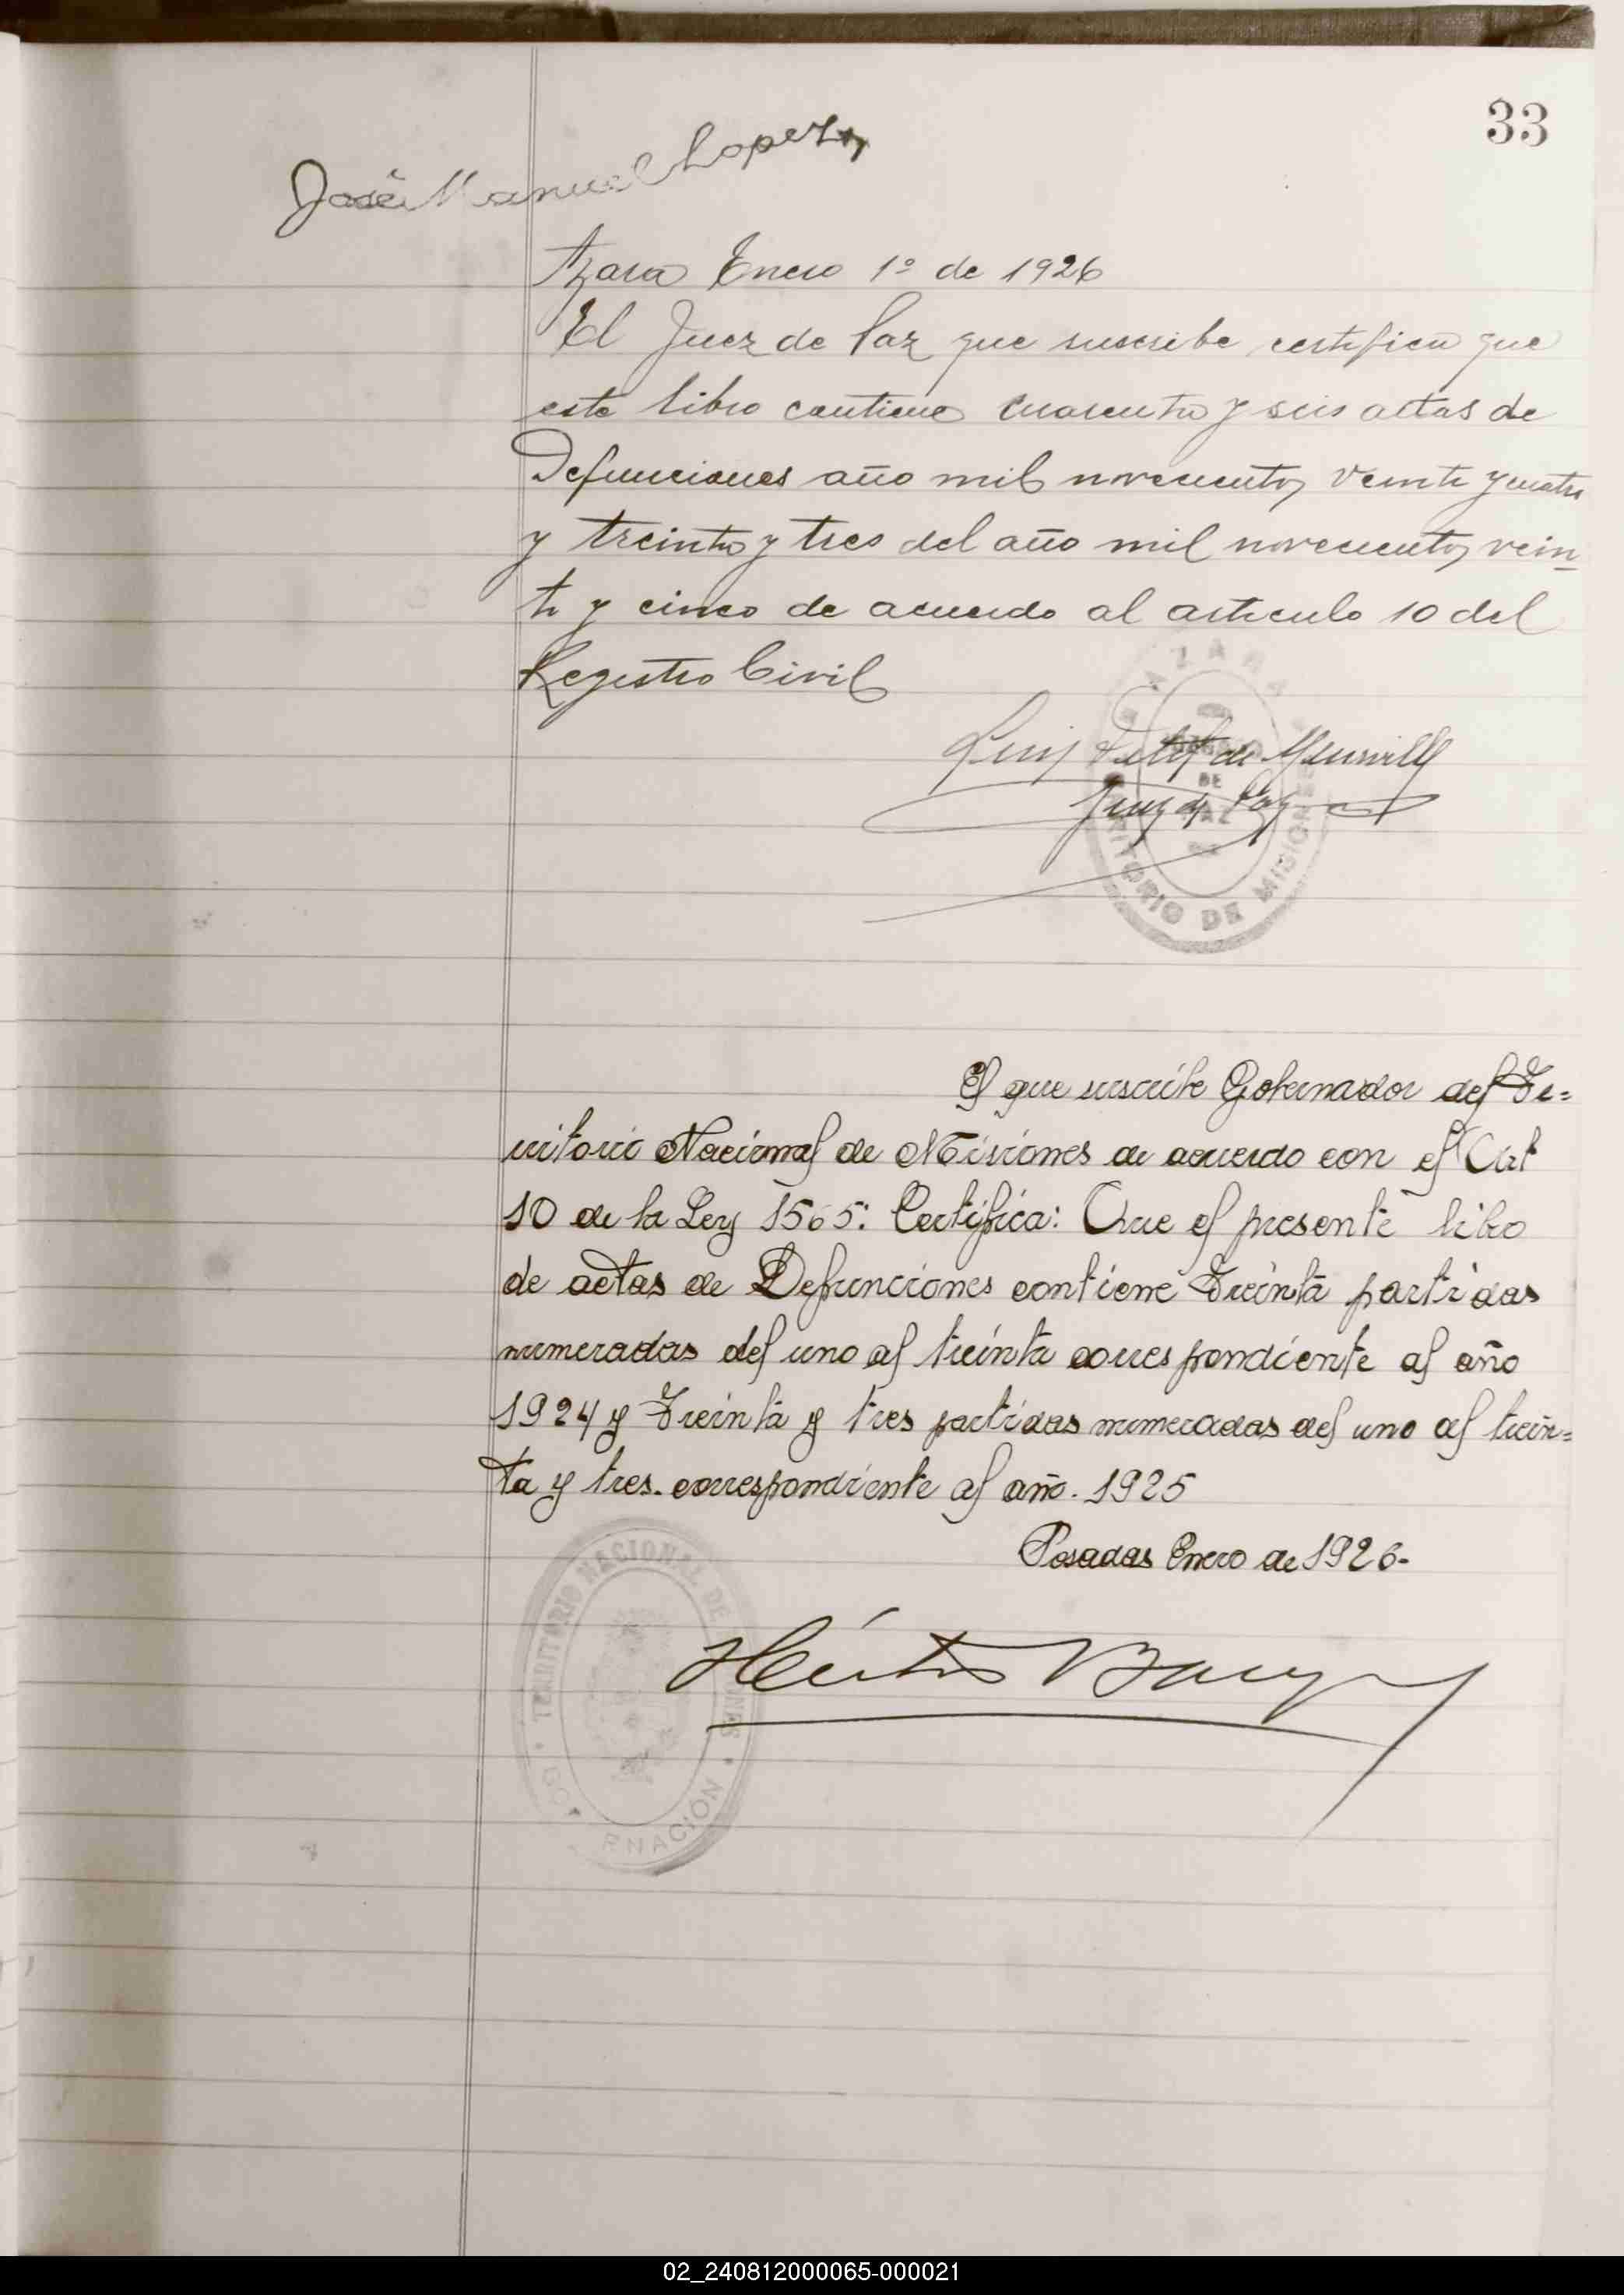 33
José Manuel Lopez
Azara Enero 1º de 1926
El Juez de Paz que suscribe certifica que
este libro contiene cuarenta y seis actas de
Defunciones año mil novecientos veinte y cuatro
y treinta y tres del año mil novecientos vein-
te y cinco de acuerdo al articulo 10 del
Registro Civil
AZARA
Luis de
Juez de Paz
DE
PAZ
TERRITORIO DE MISIONES
El que suscribe Gobernador del Te=
rritorio Nacional de Misiones de acuerdo con el Art
10 de la Ley 1565: Certifica: Que el presente libro
de actas de Defunciones contiene Treinta partidas
numeradas del uno al treinta correspondiente al año
1924 y Treinta y tres partidas numeradas del uno al trein=
ta y tres. correspondiente al año. 1925
Posadas Enero de 1926.
TERRITORIO NACIONAL DE MISIONES
GOBERNACIÓN
Héctor
02_240812000065-000021